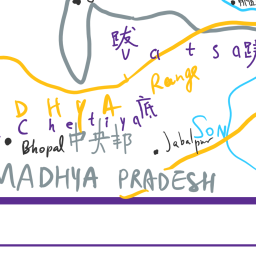 跋 蹉
Vatsa
Range
DHYA 底
Chetiya
Bhopal 中央邦 Jabalpur
Son
MADHYA PRADESH